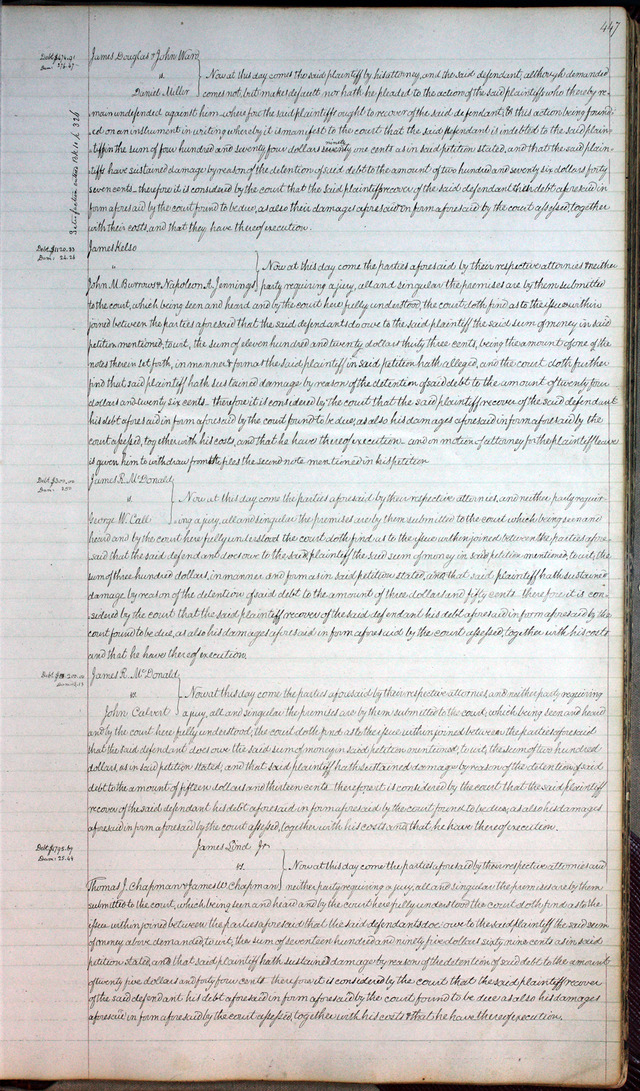 447
James Douglas & John Ward
vs
Daniel Miller
Now at this day comes the said plaintiff by his attorney, and the said defendant, although demanded
comes not, but makes default nor hath he pleaded to the action of the said plaintiffs who thereby re-
main undefended against him wherefore the said plaintiff ought to recover of the said defendant, & this action being found-
ed on an instument in writing whereby it is manifest to the court that the said defendant is indebted to the said plain-
tiff in the sum of four hundred and seventy four dollars ninety one cents as in said petition stated, and that the said plain-
tiffs have sustained damage by reason of the detention of said debt to the amount of two hundred and seventy six dollars forty
seven cents - therefore it is considered by the court that the said plaintiff recover of the said defendant their debt aforesaid in
form aforesaid by the court found to be due, as also their damages aforesaid in form aforesaid by the court assessed, together
with their costs and that they have thereof execution.
Satisfaction entered Bk. p. 326
Debt $1120.33
Dam. 24.26
James Kelso
vs
John M. Burrows & Napoleon A. Jennings
Now at this day come the parties aforesaid by their respective attornies & neither
party requiring a jury, all and singular the premises are by them submitted
to the court, which being seen and heard and by the court here fully understood, the court doth find as to the issue within
joined between the parties aforesaid that the said defendants do owe to the said plaintiff the said sum of money in said
petition mentioned, to wit, the sum of eleven hundred and twenty dollars thirty three cents, being the amount of one of the
notes therein set forth, in manner & form as the said plaintiff in said petition hath alleged, and the court doth further
find that said plaintiff hath sustained damage by reason of the detention of said debt to the amount of twenty four
dollars and twenty six cents - therefore it is considered by the court that the said plaintiff recover of the said defendant
his debt aforesaid in form aforesaid by the court found to be due, as also his damages aforesaid in form aforesaid by the
court assessed, together with his costs, and that he have thereof execution - and on motion of attorney for the plaintiff leave
is given him to withdraw from the files the second note mentioned in his petition
Debt $300.00
Dam. 3.50
James R. McDonald
vs
George W. Call
Now at this day come the parties aforesaid by their respective attornies, and neither party requir-
ing a jury, all and singular the premises are by them submitted to the court which being seen and
heard and by the court here fully understood the court doth find as to the issue within joined between the parties afore
said that the said defendant does owe to the said plaintiff the said sum of money in said petition mentioned, to wit, the
sum of three hundred dollars, in manner and form as in said petition stated, and that said plaintiff hath sustained
damage by reason of the detention of said debt to the amount of three dollars and fifty cents - therefore it is con-
sidered by the court that the said plaintiff recover of the said defendant his debt aforesaid in form aforesaid by the
court found to be due, as also his damages aforesaid in form aforesaid by the court assessed, together with his costs
and that he have thereof execution.
James R. McDonald
vs.
John Calvert
Now at this day come the parties aforesaid by their respective attornies, and neither party requiring
a jury, all and singular the premises are by them submitted to the court, which being seen and heard
and by the court here fully understood, the court doth find as to the issue within joined between the parties aforesaid
that the said defendant does owe the said sum of money in said petition mentioned, to wit, the sum of two hundred
dollars, as in said petition stated, and that said plaintiff hath sustained damage by reason of the detention of said
debt to the amount of fifteen dollars and thirteen cents - therefore it is considered by the court that the said plaintiff
recover of the said defendant his debt aforesaid in form aforesaid by the court found to be due, as also his damages
aforesaid in form aforesaid by the court assessed, together with his costs and that he have thereof execution.
Debt $1795.69
Dam. 25.44
James Lind Jr.
vs.
Thomas J. Chapman & James W. Chapman
Now at this day come the parties aforesaid by their respective attornies and
neither party requiring a jury, all and singular the premises are by them
submitted to the court, which being seen and heard and by the court here fully understood the court doth find as to the
issue within joined between the parties aforesaid that the said defendants doe owe to the said plaintiff the said sum
of money above demanded, to wit, the sum of seventeen hundred and ninety five dollars sixty nine cents as in said
petition stated, and that said plaintiff hath sustained damage by reason of the detention of said debt to the amount
of twenty five dollars and forty four cents - therefore it is considered by the court that the said plaintiff recover
of the said defendant his debt aforesaid in form aforesaid by the court found to be due as also his damages
aforesaid in form aforesaid by the court assessed, together with his costs & that he have thereof execution.